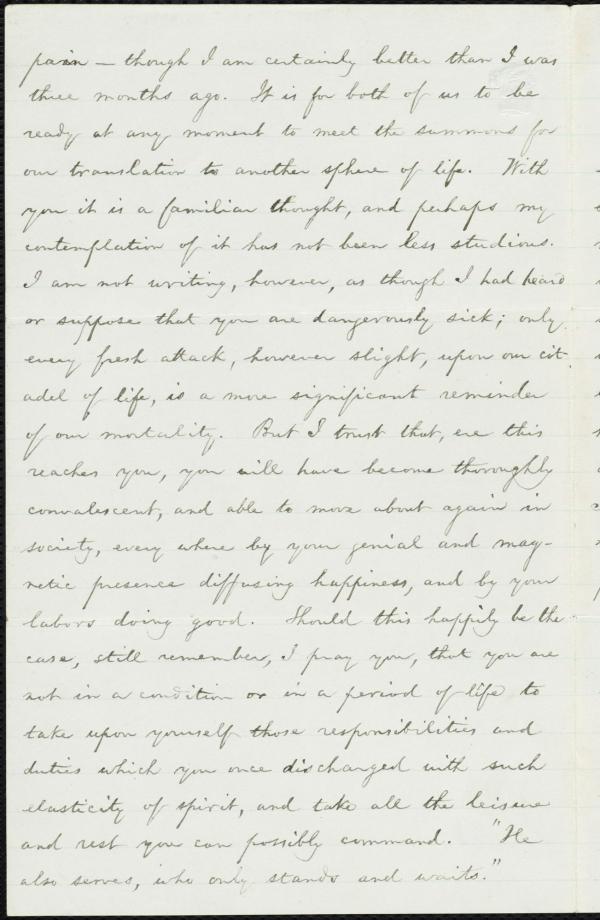 pain — though I am certainly better than I was
three months ago. It is for both of us to be
ready at any moment to meet the summons for
our translation to another sphere of life. With
you it is a familiar thought, and perhaps my
contemplation of it has not been less studious.
I am not writing, however, as though I had heard
or suppose that you are dangerously sick; only
every fresh attack, however slight, upon our cit-
adel of life, is a more significant reminder
of our mortality. But I trust that, ere this
reaches you, you will have become thoroughly
convalescent, and able to move about again in
society, every where by your genial and mag-
netic presence diffusing happiness, and by your
labors doing good. Should this happily be the
case, still remember, I pray you, that you are
not in a condition or in a period of life to
take upon yourself those responsibilities and
duties which you once discharged with such
elasticity of spirit, and take all the leisure
and rest you can possibly command. "He
also serves, who only stands and waits."